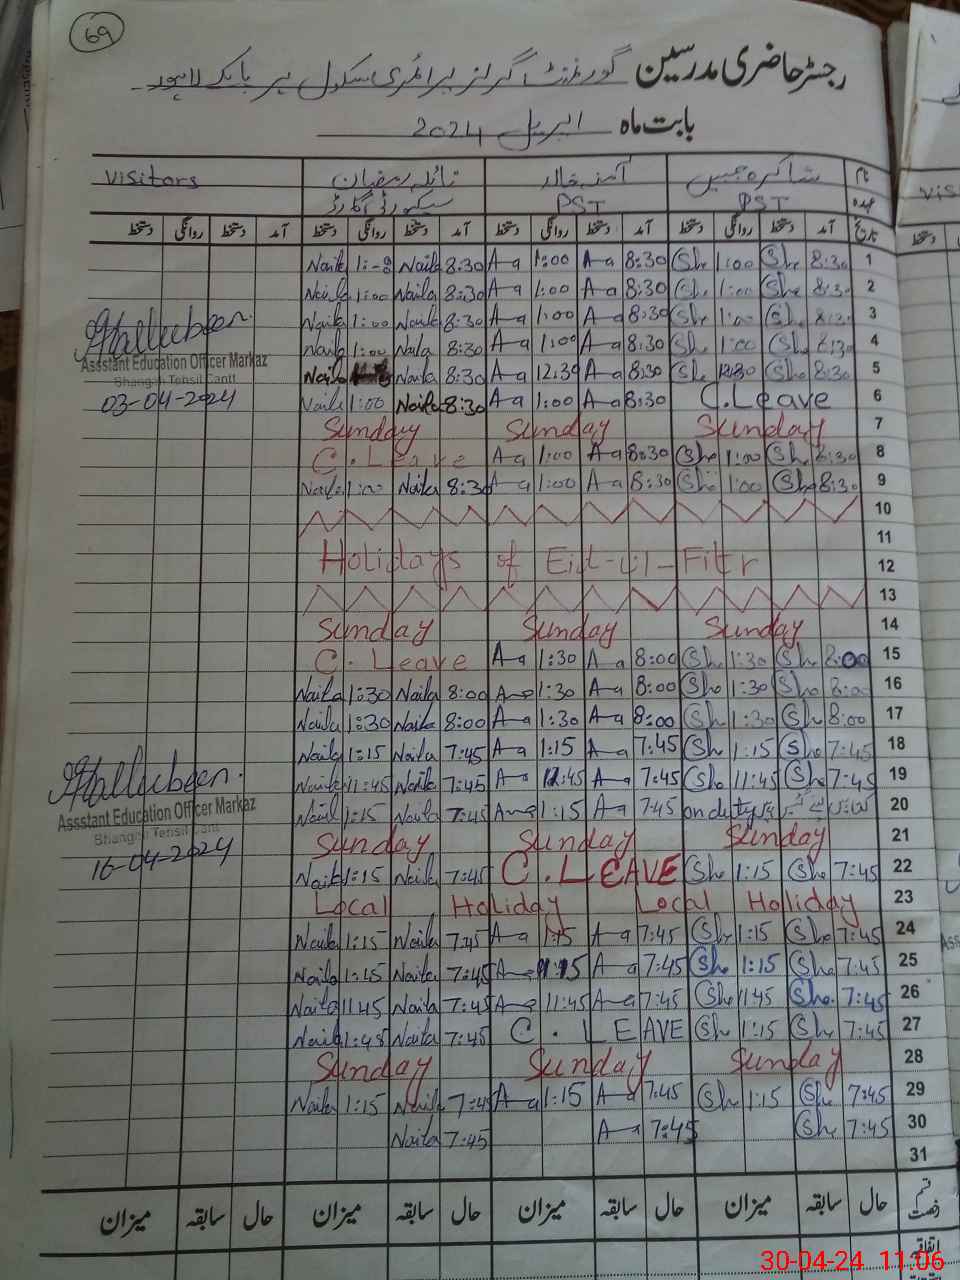 69
رجسٹر حاضری مدرسین گورنمنٹ گرلز پرائمری سکول
بابت ماہ اپریل 2024
نام شاکرہ آمنہ خالد نائلہ رمضان Visitors
عہدہ PST PST سیکورٹی گارڈ
تاریخ آمد دستخط روانگی دستخط آمد دستخط روانگی دستخط آمد دستخط روانگی دستخط آمد دستخط روانگی دستخط
Naila Naila 8:30 A-a 1:00 A-a 8:30 She 1:00 She 8:30 1
Naila 1:00 Naila 8:30 A-a 1:00 A-a 8:30 She 1:00 She 8:30 2
Naila 1:00 Naila 8:30 A-a 1:00 A-a 8:30 She 1:00 She 8:30 3
Naila 1:00 Naila 8:30 A-a 1:00 A-a 8:30 She 1:00 She 8:30 4
Asstant Education Officer Markaz
Naila Naila 8:30 A-a 12:30 A-a 8:30 She 12:30 She 8:30 5
Bhangali Tehsil Cantt
03-04-2024 Naila 1:00 Naila 8:30 A-a 1:00 A-a 8:30 C.Leave 6
Sunday Sunday Sunday 7
C.Leave A-a 1:00 A-a 8:30 She 1:00 She 8:30 8
Naila 1:00 Naila 8:30 A-a 1:00 A-a 8:30 She 1:00 She 8:30 9
10
11
Holidays of Eid-ul-Fitr 12
13
Sunday Sunday Sunday 14
C. Leave A-a 1:30 A-a 8:00 She 1:30 She 8:00 15
Naila 1:30 Naila 8:00 A-a 1:30 A-a 8:00 She 1:30 She 8:00 16
Naila 1:30 Naila 8:00 A-a 1:30 A-a 8:00 She 1:30 She 8:00 17
Naila 1:15 Naila 7:45 A-a 1:15 A-a 7:45 She 1:15 She 7:45 18
Naila 11:45 Naila 7:45 A-a 11:45 A-a 7:45 She 11:45 She 7:45 19
Asstant Education Officer Markaz
Naila 1:15 Naila 7:45 A-a 1:15 A-a 7:45 on duty 20
Bhangali Tehsil Cantt
Sunday Sunday Sunday 21
16-04-2024 Naila 1:15 Naila 7:45 C.LEAVE She 1:15 She 7:45 22
Local Holiday Local Holiday 23
Naila 1:15 Naila 7:45 A-a 1:15 A-a 7:45 She 1:15 She 7:45 24
Naila 1:15 Naila 7:45 A-a 1:15 A-a 7:45 She 1:15 She 7:45 25
Naila 11:45 Naila 7:45 A-a 11:45 A-a 7:45 She 11:45 She 7:45 26
Naila 1:45 Naila 7:45 C. LEAVE She 1:15 She 7:45 27
Sunday Sunday Sunday 28
Naila 1:15 Naila 7:45 A-a 1:15 A-a 7:45 She 1:15 She 7:45 29
Naila 7:45 A-a 7:45 She 7:45 30
31
قسم رخصت حال سابقہ میزان حال سابقہ میزان حال سابقہ میزان حال سابقہ میزان
اتفاقیہ
30-04-24 11:06